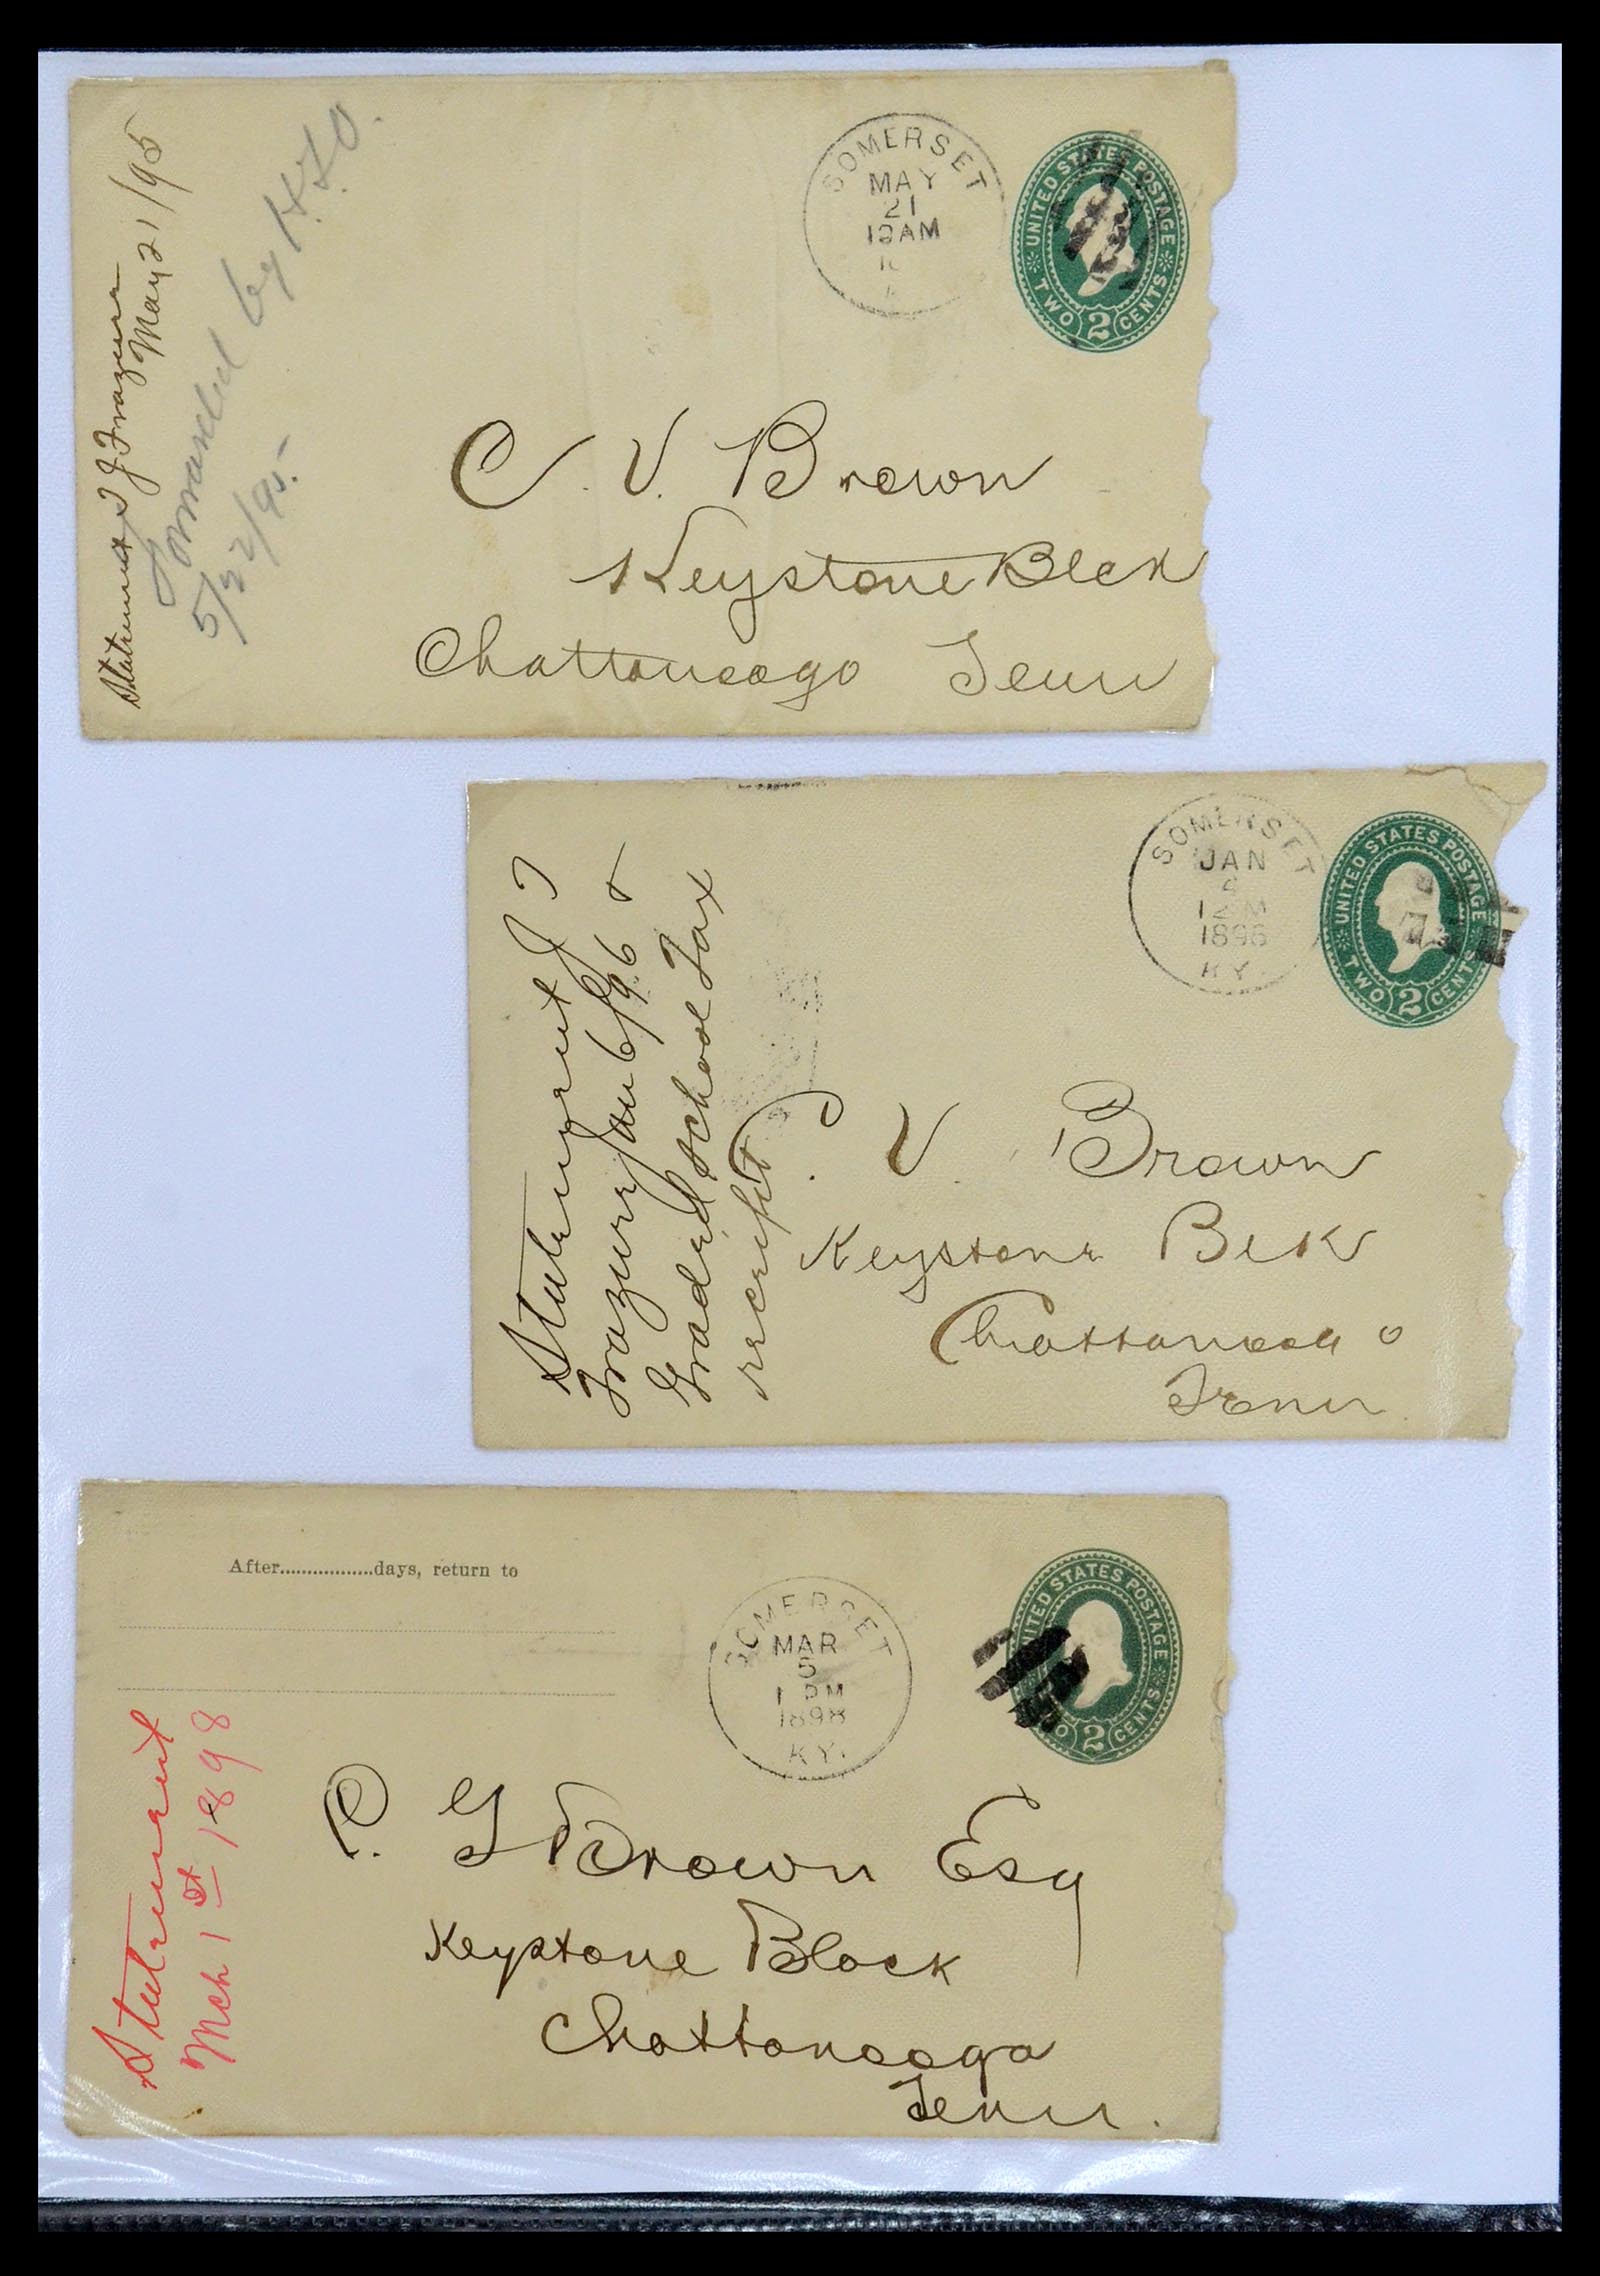 Statement J J Frazure
May 21/95
Forwarded by
5/22/95-
SOMERSET
MAY
21
12AM
UNITED STATES POSTAGE
TWO 2 CENTS
C. V. Brown
Keystone Blck
Chattanooga Tenn
Statement J J
Frazure Jan 6/96 &
Graded school Tax
receipt
SOMERSET
JAN
4
12 M
1896
KY.
UNITED STATES POSTAGE
TWO 2 CENTS
C. V. Brown
Keystone Blk
Chattanooga
Tenn
After.................days, return to
SOMERSET
MAR
5
1 PM
1898
KY.
UNITED STATES POSTAGE
2 CENTS
Statement
Mch 1st 1898
Brown Esq
Keystone Block
Chattanooga
Tenn.